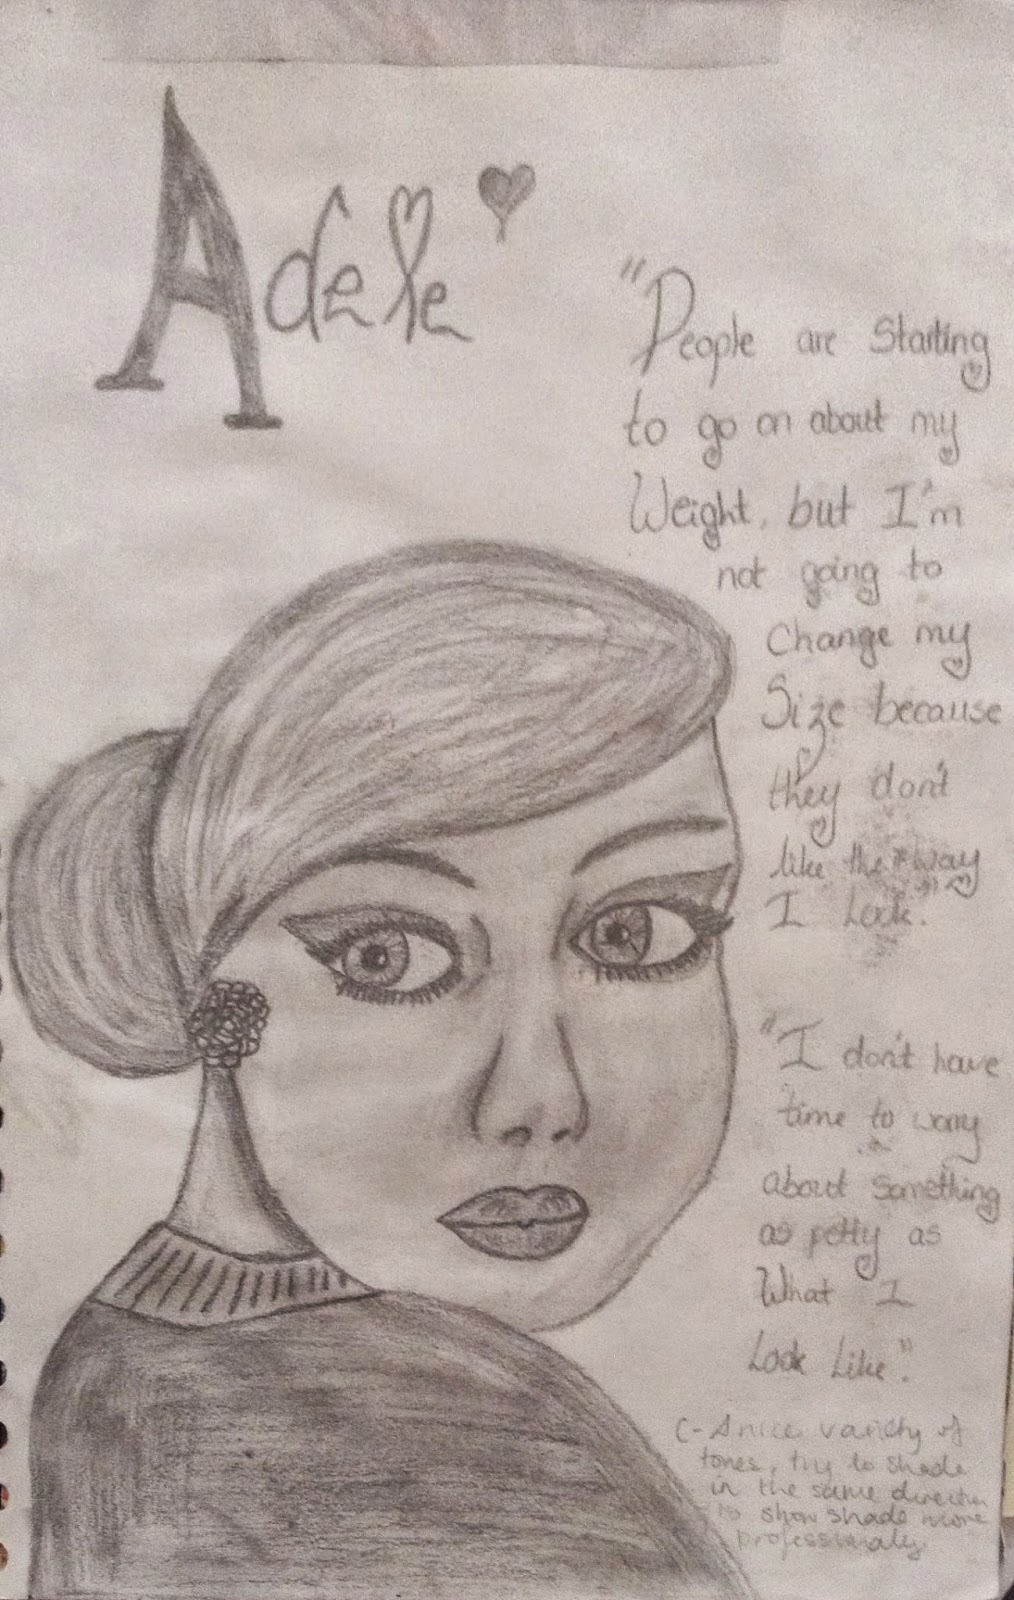 Adele
"People are Starting
to go on about my
Weight, but I'm
not going to
Change my
Size because
they don't
like the way
I Look."
"I don't have
time to worry
about something
as petty as
What I
Look Like."
C- A nice variety of
tones, try to shade
in the same direction
to show shade more
professionally